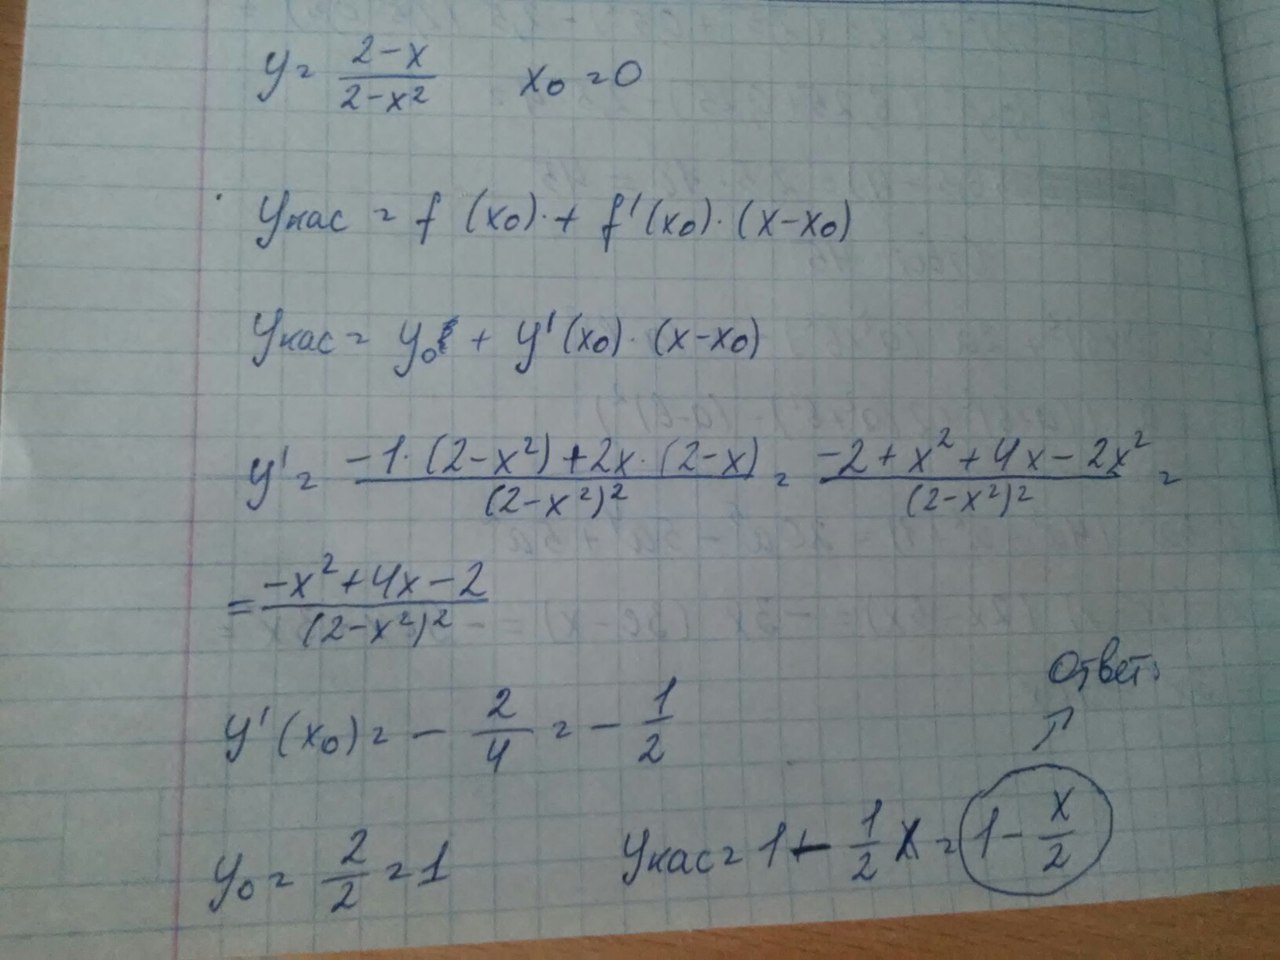 y = (2-x)/(2-x²)   x₀ = 0
yкас = f(x₀) + f'(x₀)·(x-x₀)
yкас = y₀ + y'(x₀)·(x-x₀)
y' = (-1·(2-x²)+2x·(2-x))/((2-x²)²) = (-2+x²+4x-2x²)/((2-x²)²) =
= (-x²+4x-2)/((2-x²)²)
ответ:
y'(x₀) = -2/4 = -1/2
y₀ = 2/2 = 1   yкас = 1 - 1/2 x = 1 - x/2